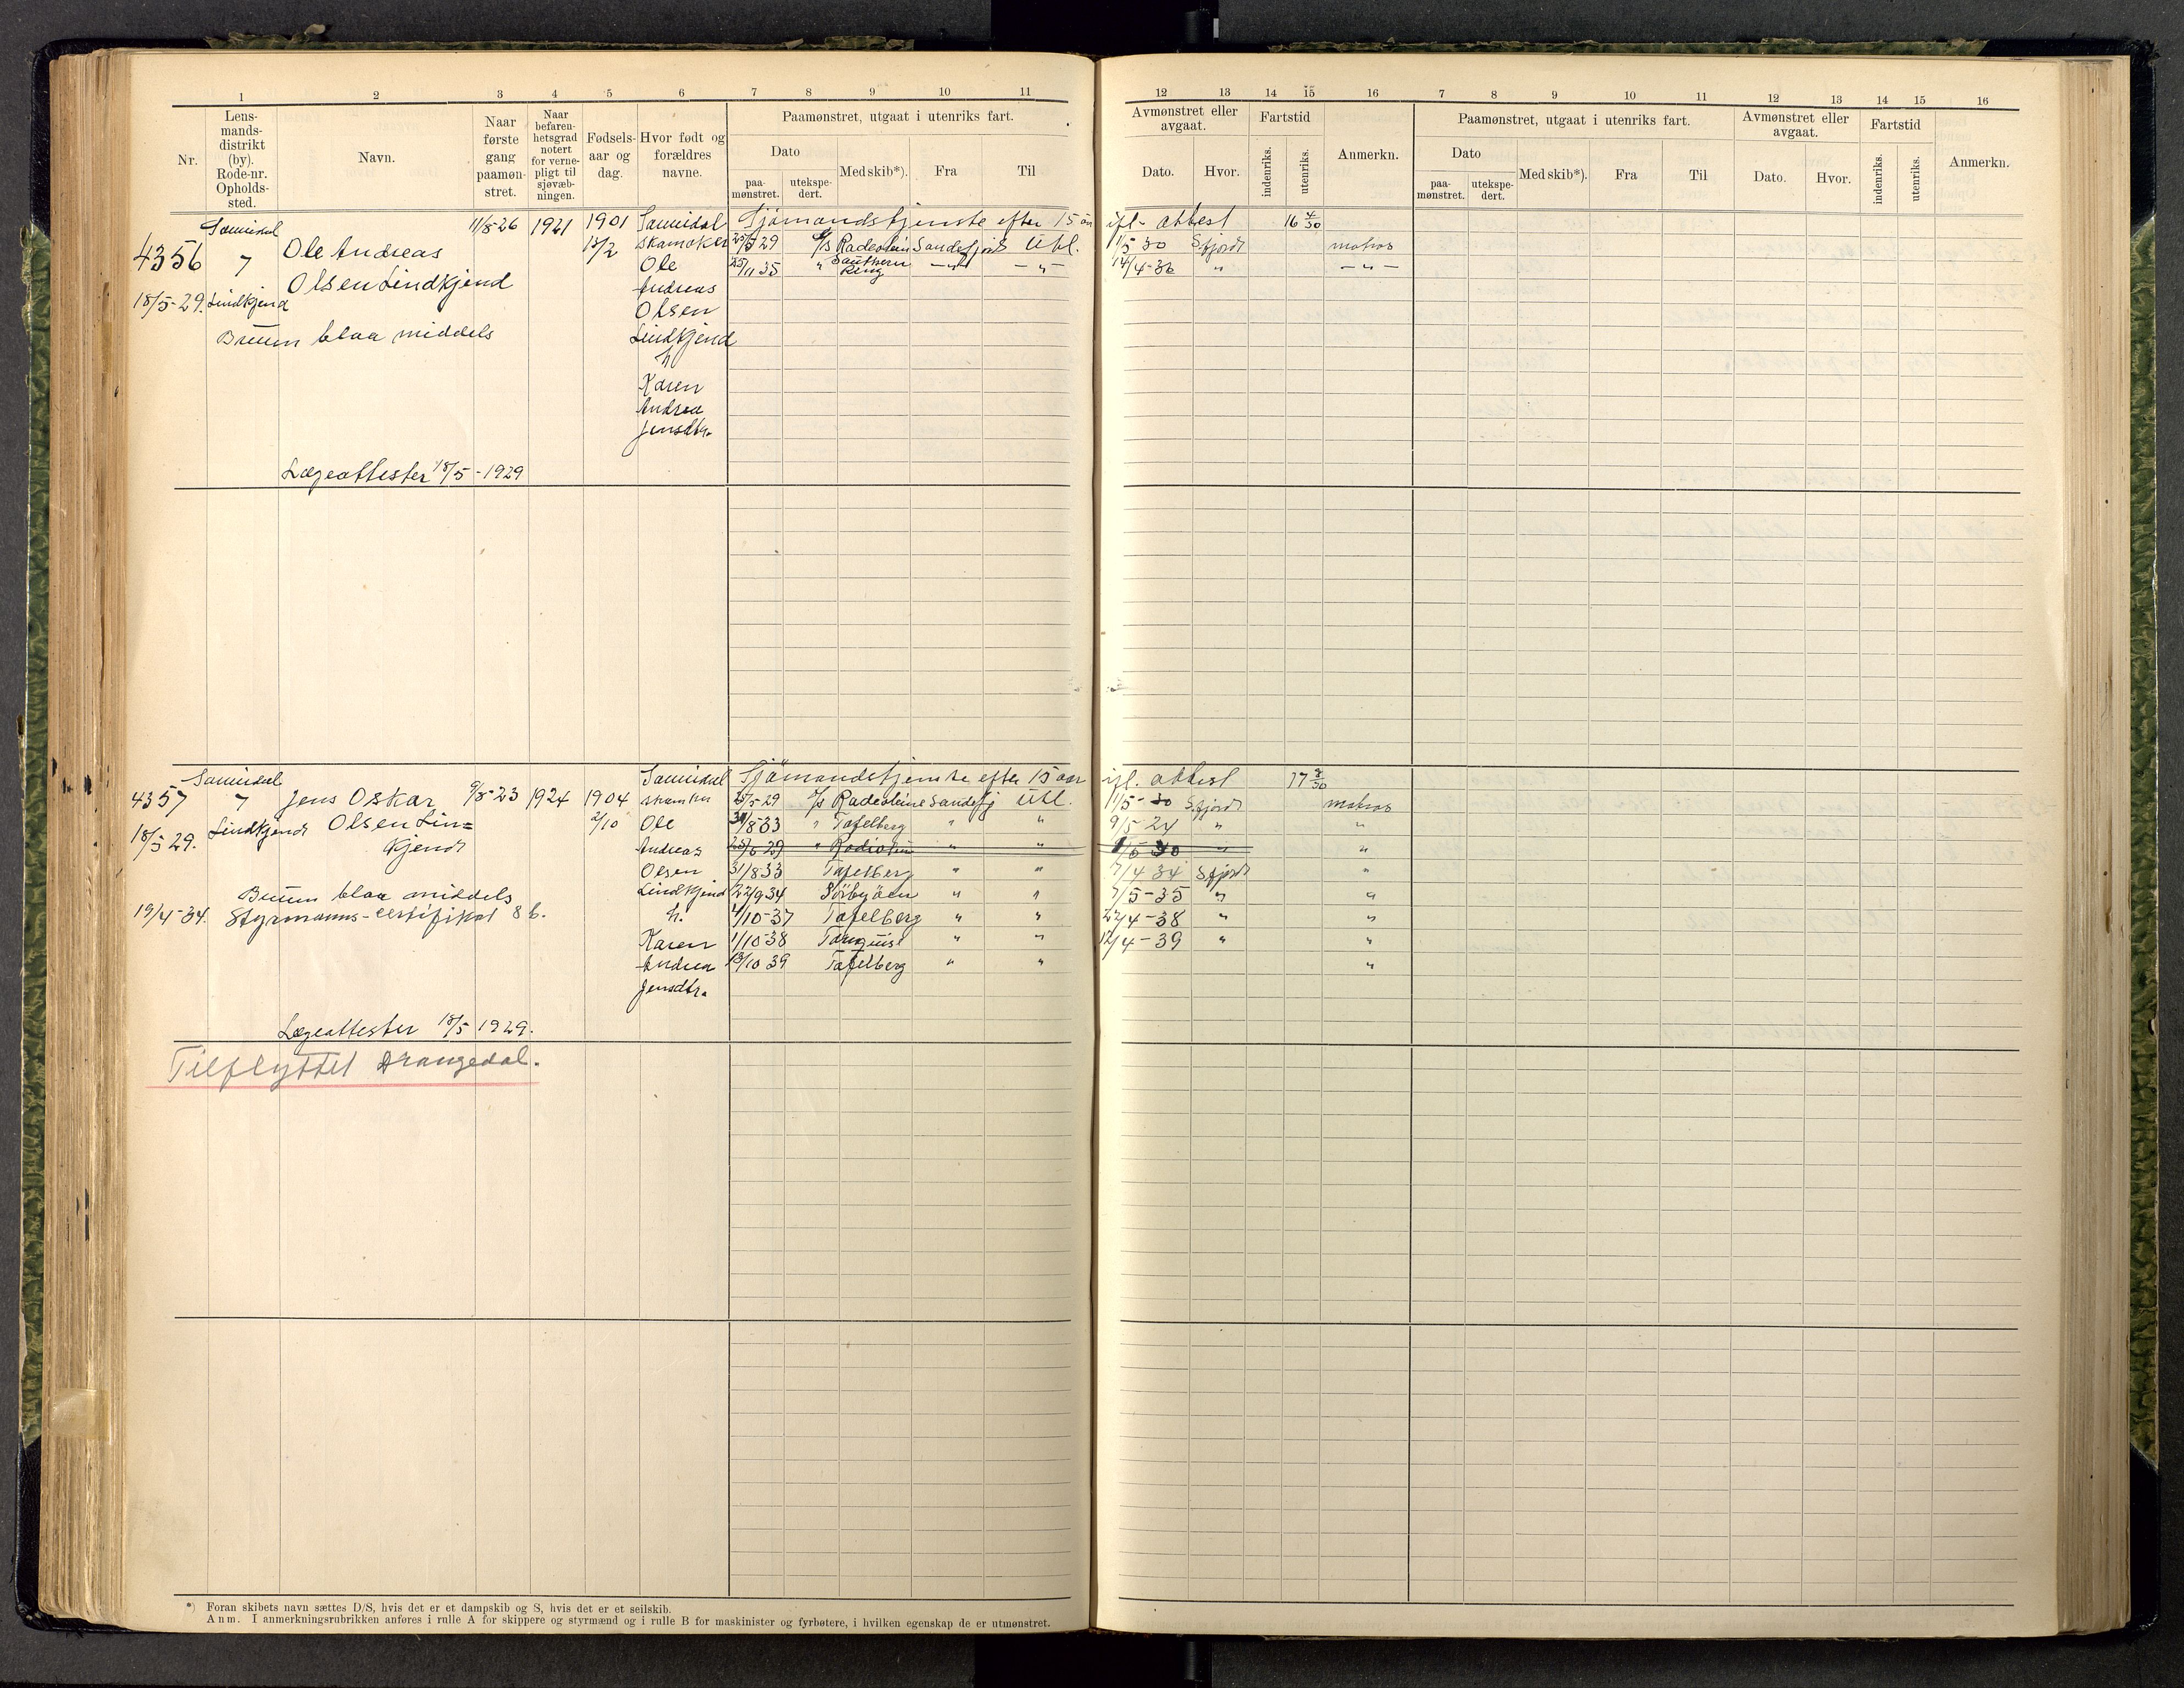 1 2 3 4 5 6 7 8 9 10 11
Nr.
Lens-
mands-
distrikt
(by).
Rode-nr.
Opholds-
sted.
Navn.
Naar
første
gang
paamøn-
stret.
Naar
befaren-
hetsgrad
notert
for verne-
pligt til
sjøvæb-
ningen.
Fødsels-
aar og
dag.
Hvor født og
forældres
navne.
Paamønstret, utgaat i utenriks fart.
Dato
paa-
mønstret.
utekspe-
dert.
Med skib*).
Fra
Til
12 13 14 15 16 7 8 9 10 11 12 13 14 15 16
Avmønstret eller
avgaat.
Dato.
Hvor.
Fartstid
indenriks.
utenriks.
Anmerkn.
Paamønstret, utgaat i utenriks fart.
Dato
paa-
mønstret.
utekspe-
dert.
Med skib*).
Fra
Til
Avmønstret eller
avgaat.
Dato.
Hvor.
Fartstid
indenriks.
utenriks.
Anmerkn.
Sannidal
4356 7 Ole Andreas
Olsen Lindkjend
18/5-29. Lindkjend
Bruun blaa middels
11/8-26 1921 1901
13/2
Sannidal
Ole
Andreas
Olsen
Lindkjend
h
Karen
Andrea
Jensdtr.
Sjömandstjenste efter 15 aar ifl. attest 16 4/30
25/5 29 Sandefjord Utl. 11/5 30 S.fjord matros
25/11 35 " Southern King -"- -"- 14/4-36 " -"-
Lægeattester 18/5-1929
Sannidal
4357 7 Jens Oskar
Olsen Lin=
kjend
18/5 29. Lindkjend
9/8-23 1924 1904
2/10
Sannidal
Ole
Andreas
Olsen
Lindkjend
h.
Karen
Andrea
Jensdtr.
Bruun blaa middels
19/4-34. Styrmanns-certifikat 8 b.
Sjömandstjenste efter 15 aar ifl. attest
25/5-29 Sandefj Utl. 11/5-30 S.fjord matros
31/8-33 " Tafelberg " " "
31/8 33 Tafelberg " " 7/4 34 S.fjord "
22/9 34 Sörbyöen " " 7/5-35 " "
4/10-37 Tafelberg " " 22/4-38 " "
1/10-38 " " 12/4-39 " "
13/10 39 Tafelberg " " "
Lægeattester 18/5 1929.
Tilflyttet Drangedal.
*) Foran skibets navn sættes D/S, hvis det er et dampskib og S, hvis det er et seilskib.
Anm. I anmerkningsrubrikken anføres i rulle A for skippere og styrmænd og i rulle B for maskinister og fyrbøtere, i hvilken egenskap de er utmønstret.